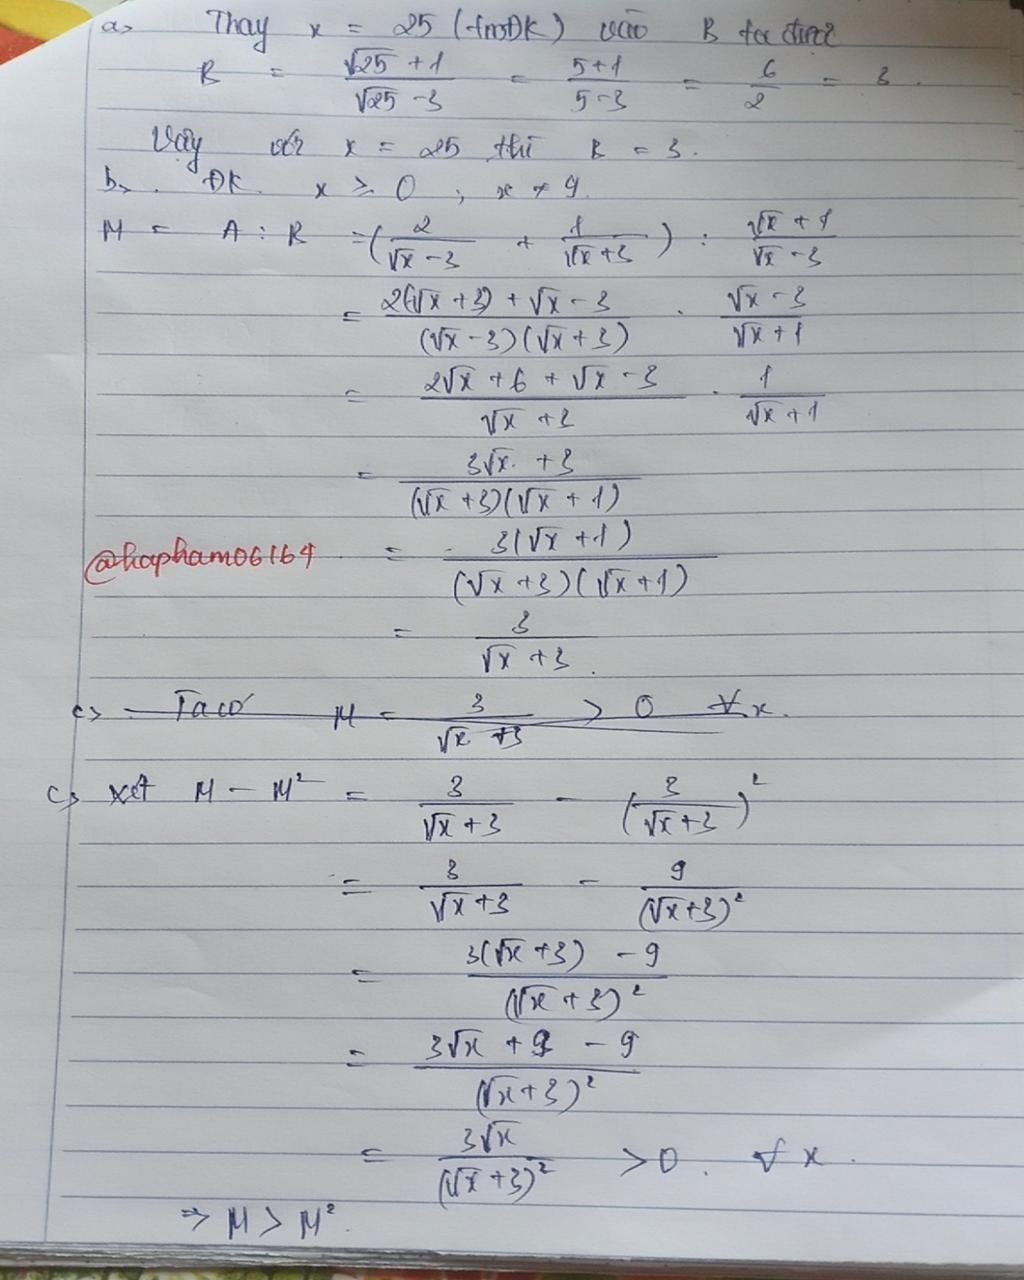 a, Thay x = 25 (tmĐK) vào B ta được
B = \frac{\sqrt{25} + 1}{\sqrt{25} - 3} = \frac{5+1}{5-3} = \frac{6}{2} = 3.
Vậy với x = 25 thì B = 3.
b, . ĐK x ≥ 0 ; x ≠ 9.
M = A : B = (\frac{2}{\sqrt{x} - 3} + \frac{1}{\sqrt{x} + 3}) : \frac{\sqrt{x} + 1}{\sqrt{x} - 3}
= \frac{2(\sqrt{x} + 3) + \sqrt{x} - 3}{(\sqrt{x} - 3)(\sqrt{x} + 3)} . \frac{\sqrt{x} - 3}{\sqrt{x} + 1}
= \frac{2\sqrt{x} + 6 + \sqrt{x} - 3}{\sqrt{x} + 3} . \frac{1}{\sqrt{x} + 1}
= \frac{3\sqrt{x} + 3}{(\sqrt{x} + 3)(\sqrt{x} + 1)}
@hapham06164 = \frac{3(\sqrt{x} + 1)}{(\sqrt{x} + 3)(\sqrt{x} + 1)}
= \frac{3}{\sqrt{x} + 3}.
c, Ta có M = \frac{3}{\sqrt{x} + 3} > 0 ∀x.
c, xét M - M² = \frac{3}{\sqrt{x} + 3} - (\frac{3}{\sqrt{x} + 3})²
= \frac{3}{\sqrt{x} + 3} - \frac{9}{(\sqrt{x} + 3)²}
= \frac{3(\sqrt{x} + 3) - 9}{(\sqrt{x} + 3)²}
= \frac{3\sqrt{x} + 9 - 9}{(\sqrt{x} + 3)²}
= \frac{3\sqrt{x}}{(\sqrt{x} + 3)²} > 0. ∀ x.
⇒ M > M².